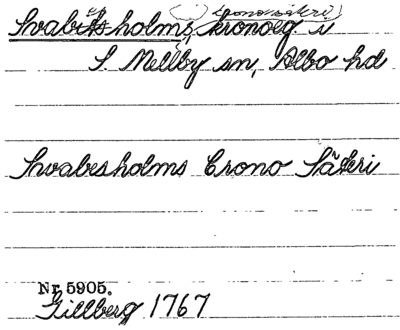 Svabesholms kronoeg. i
S. Mellby sn, Albo hd
Svabesholms Crono Säteri
Nr 5905.
Gillberg 1767